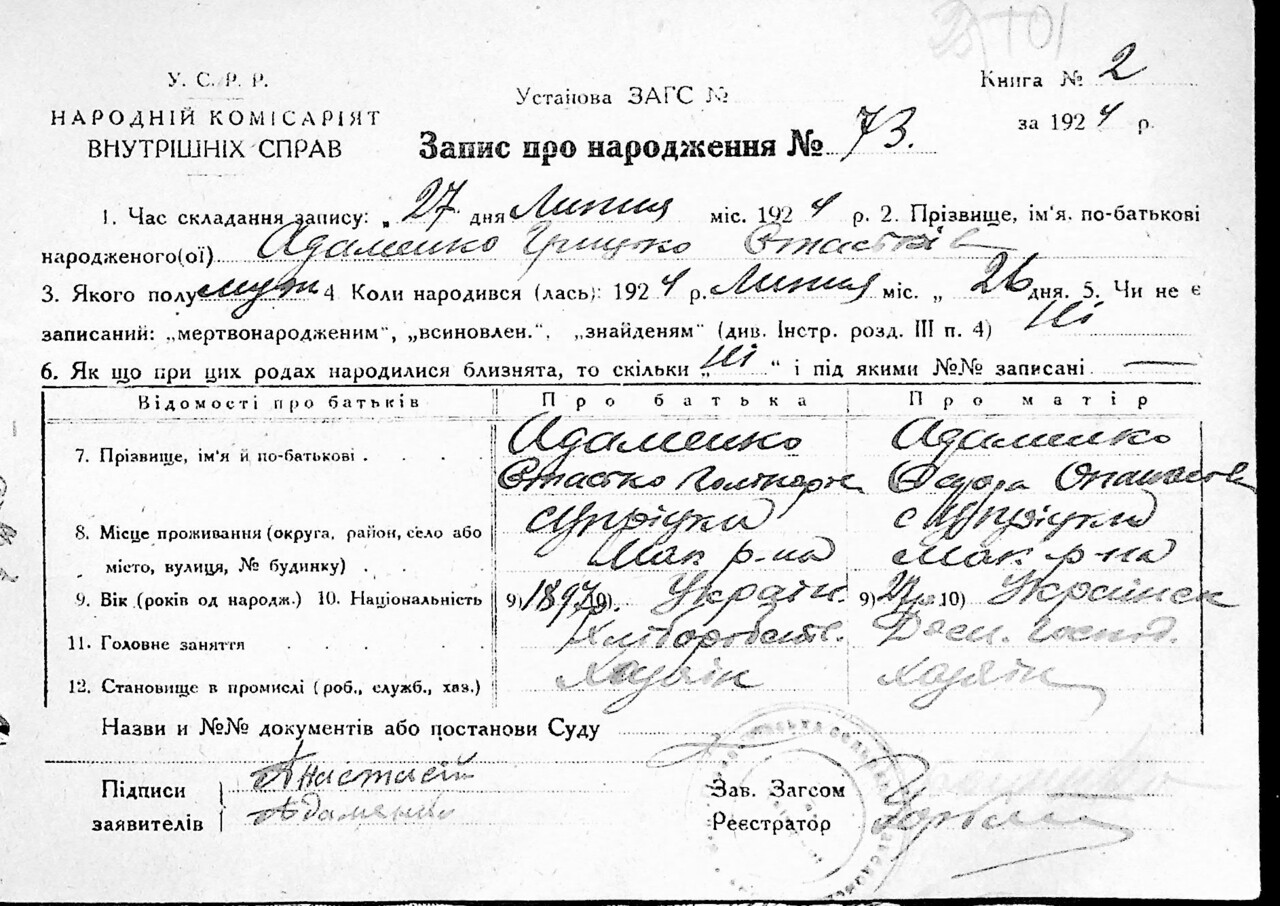 У. С. Р. Р.
НАРОДНІЙ КОМІСАРІЯТ
ВНУТРІШНІХ СПРАВ
Установа ЗАГС №
Книга № 2
за 1924 р.
Запис про народження № 73.
1. Час складання запису: „27 дня Липня міс. 1924 р. 2. Прізвище, ім'я. по-батькові
народженого(ої) Адаменко Грицко Стастків
3. Якого полу муж 4 Коли народився (лась): 1924 р. Липня міс. „ 26 дня. 5. Чи не є
записаний: „мертвонародженим", „всиновлен.", „знайденям" (див. Інстр. розд. III п. 4) Ні
6. Як що при цих родах народилися близнята, то скільки „Ні" і під якими №№ записані —
Відомості про батьків Про батька Про матір
7. Прізвище, ім'я й по-батькові . . . . Адаменко Адаменко
Стастко
8. Місце проживання (округа, район, село або
Мак. р-на Мак. р-на
місто, вулиця, № будинку) . . .
9. Вік (років од народж.) 10. Національність 9) 1897 р. 10) Україн. 9) 10) Українск
11. Головне заняття . . . . Хліборобств. Дом. Господ.
12. Становище в промислі (роб., служб., хаз.) Хазяїн Хазяїн
Назви и №№ документів або постанови Суду —
Підписи
заявителів
Анастасій
Адаменко
Зав. Загсом
Реєстратор